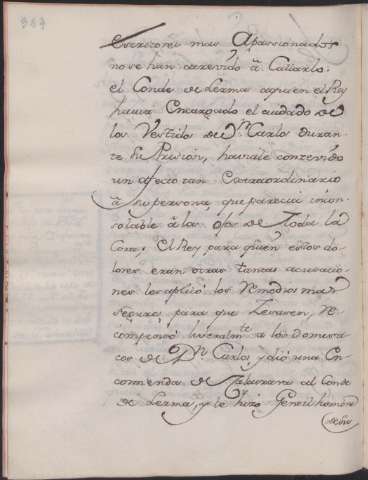 Escritores mas Apassionados
no se han atrevido â Callarlo:
el Conde de Lerma aquien el Rey
havia Encargado el cuidado de
los Vestidos de Dn. Carlos duran-
te su Prision, haviale contenido
un afecto tan Extraordinario
â su persona, que parecia incon-
solable â los ojos de Toda la
Corte; El Rey para quien estos do-
lores eran otras tantas acusacio-
nes los aplicó los Remedios mas
seguros para que zesasen, re-
compensó liveralmte. a los domesti-
cos de Dn. Carlos y dió una En-
comienda de Calatrava al Conde
de Lerma, y le hizo Gentilhombre